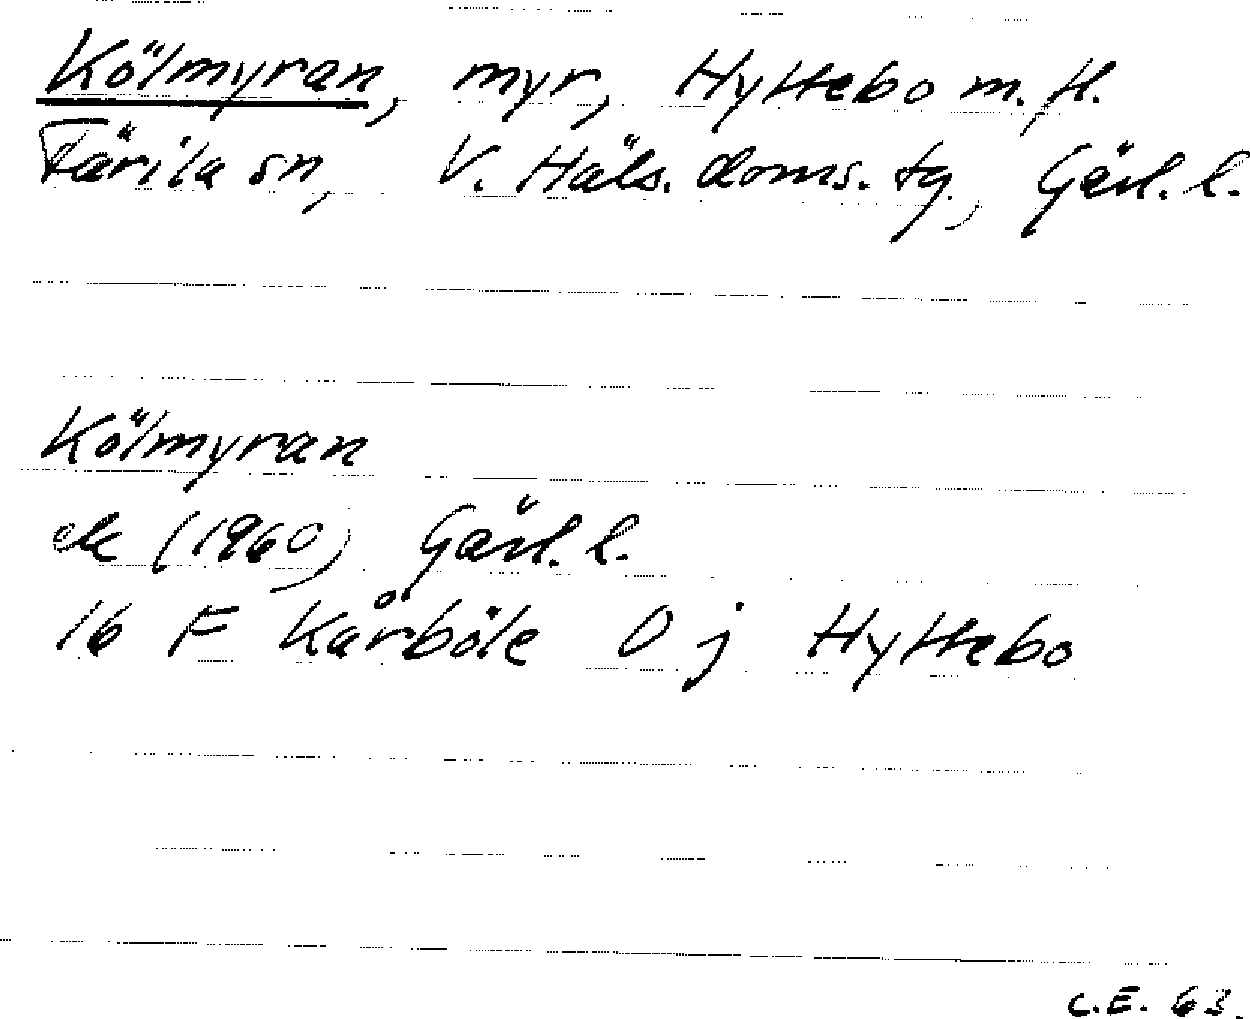 Kölmyran, myr, Hyttebo m.fl.
Färila sn, V. Häls. doms. tg., Gävl. l.
Kölmyran
ek (1960) Gävl. l.
16 F Kårböle 0 j Hyttebo
C.E. 63.